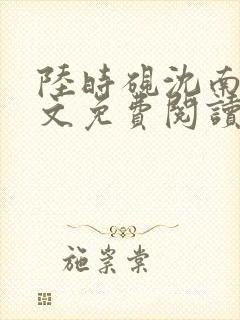 陸時硯沈南
文免費閱讀
施崇棠